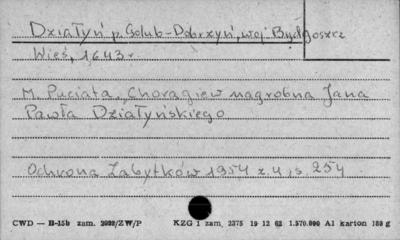 Działyń p. Golub-Dobrzyń, woj. Bydgoszcz
Wieś, 1643 r.
M. Puciata, Chorągiew nagrobna Jana
Pawła Działyńskiego
Ochrona Zabytków 1954 z. 4, s. 254
CWD — B-15b zam. 2092/ZW/P KZG 1 zam. 2375 19 12 62 1.570.000 A1 karton 180 g